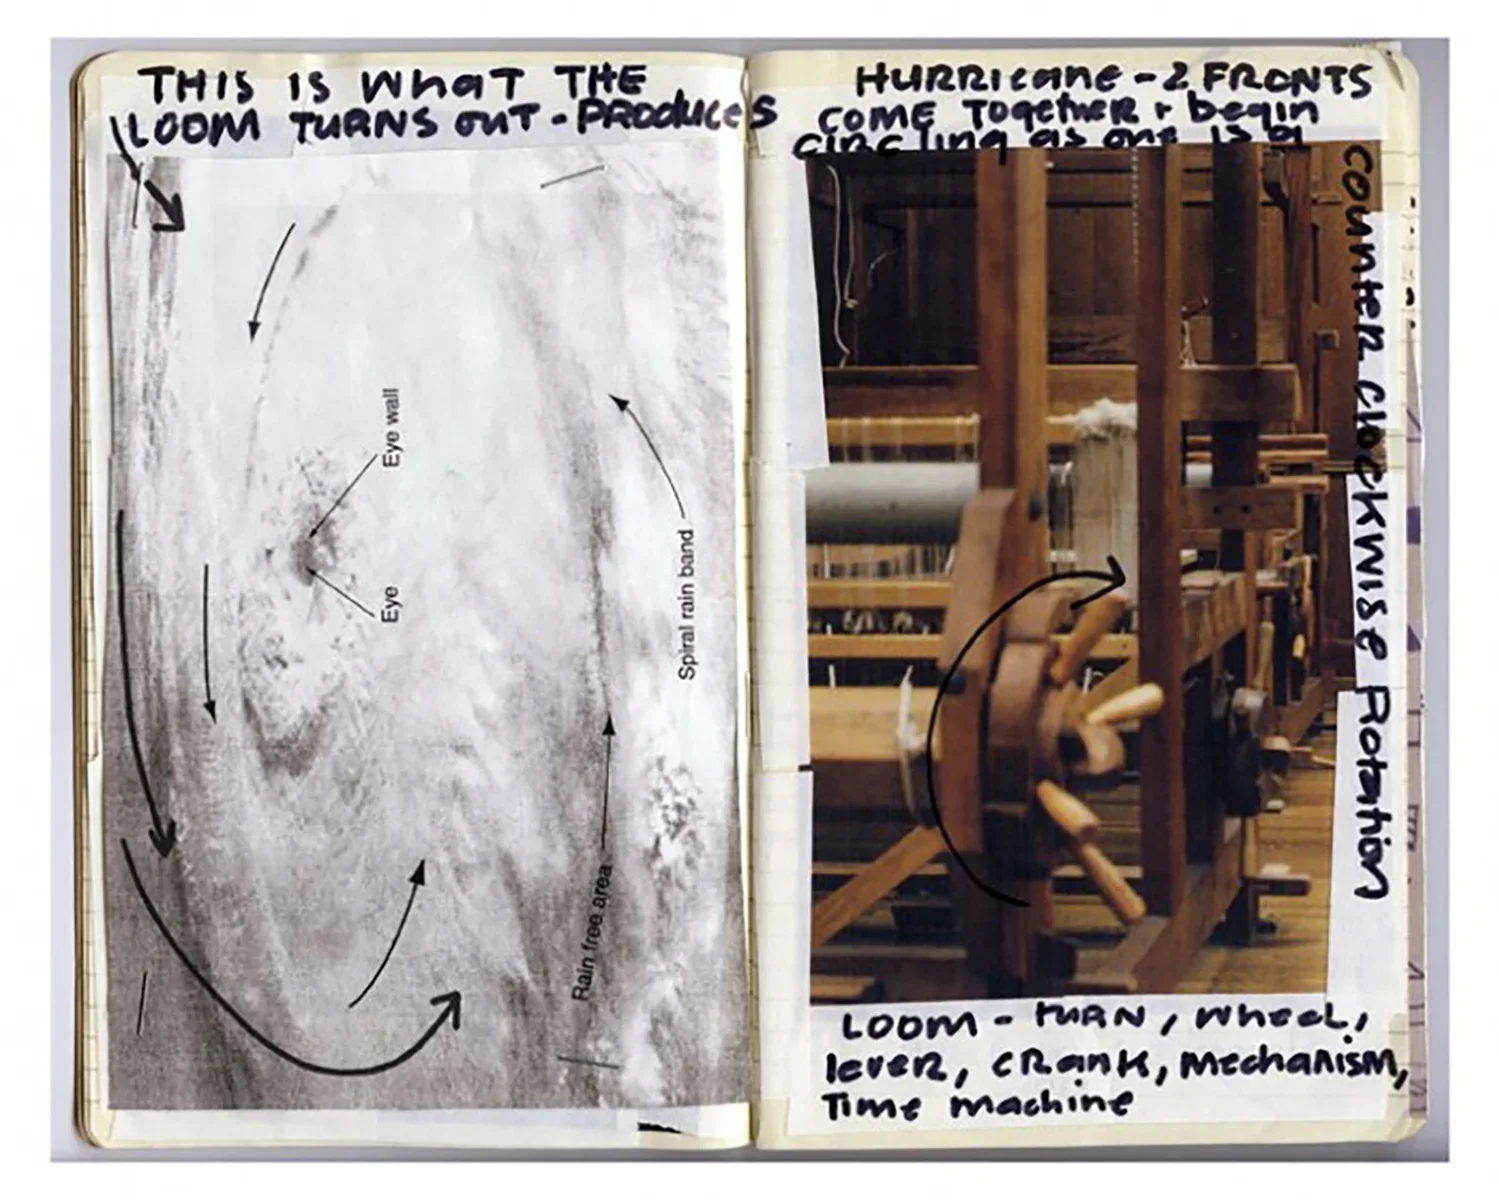 THIS IS WHAT THE
LOOM TURNS OUT - PRODUCES
Eye wall
Eye
Spiral rain band
Rain free area
HURRICANE - 2 FRONTS
COME TOGETHER + begin
circling as one is a
COUNTER CLOCKWISE ROTATION
LOOM - TURN, WHEEL,
lever, CRANK, MECHANISM,
TIME MACHINE